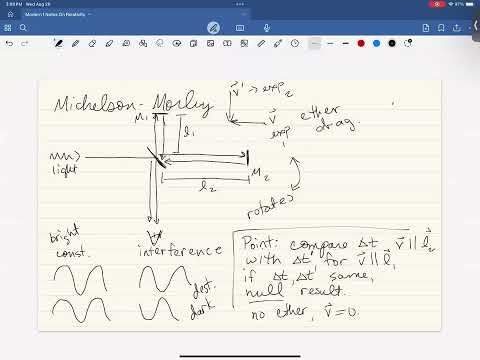 3:08 PM Wed Aug 20
97%
Modern 1 Notes On Relativity
Michelson-Morley
v' → exp 2
v
exp 1
ether
drag.
M1
l1
light
M2
l2
rotated
bright
const.
interference
dest.
dark
Point: compare Δt v || l2
with Δt' for v || l1
if Δt, Δt' same,
null result.
no ether, v = 0.